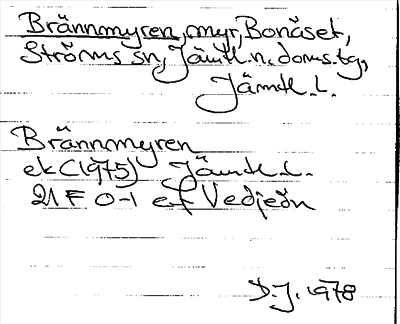 Brännmyren, myr, Bonäset,
Ströms sn, Jämtl. n. doms.tg,
Jämtl. L.
Brännmyren
ek (1975) Jämtl. L.
21 F 0-1 ef Vedjeön
D.J. 1978